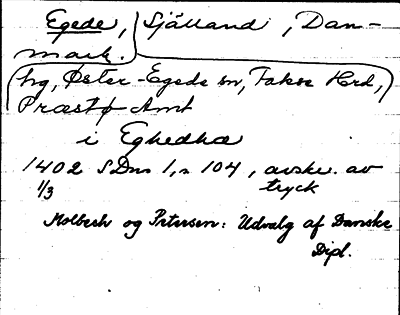 Egede, Själland, Dan-
mark.
hg, Øster-Egede sn, Fakse Hrd,
Præstø Amt
i Eghedha
1402 SDns 1, n 104, avskr. av
1/3 tryck
Molbech og Petersen: Udvalg af Danske
Dipl.